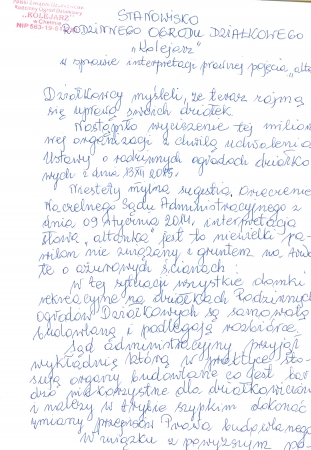 Polski Związek Działkowców
Rodzinny Ogród Działkowy
"KOLEJARZ"
w Chełmie
STANOWISKO
RODZINNEGO OGRODU DZIAŁKOWEGO
"Kolejarz"
w sprawie interpretacji prawnej pojęcia „alta
Działkowcy myśleli, że teraz zajmą
się uprawą swoich działek.
Nastąpiło wyciszenie tej milion
wej organizacji z chwilą uchwalenia
Ustawy o rodzinnych ogrodach działko
wych z dnia 13 XII
Niestety mylna sugestia, orzeczenie
Naczelnego Sądu Administracyjnego z
dnia 09 stycznia 2014, interpretacja
słowa „altanka" jest to niewielki pa-
wilon nie związany z gruntem na
te o ażurowych ścianach.
W tej sytuacji wszystkie domki
rekreacyjne na działkach Rodzinnych
Ogrodów Działkowych są samowolą
budowlaną i podlegają rozbiórce.
Sąd administracyjny przyjął
wykładnię którą w praktyce sto-
sują organy budowlane co jest bar
dzo niekorzystne dla działkowiczów
i należy w trybie szybkim dokonać
zmiany przepisów Prawa budowlanego
W związku z powyższym po-